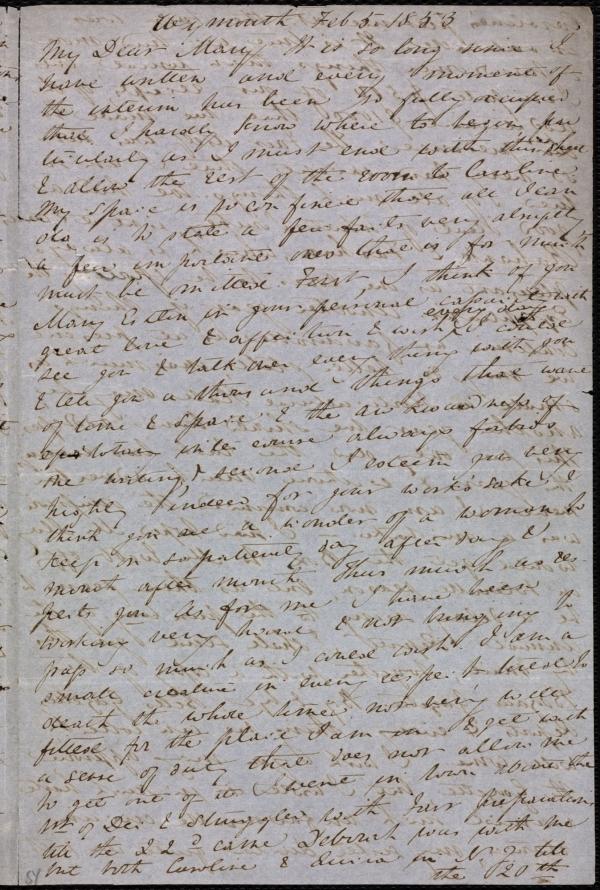 Weymouth Feb 5. 1853
My Dear Mary It is so long since I
have written and every moment of
the interim has been so fully occupied
that I hardly know where to begin par
ticularly as I must end with this sheet
& allow the rest of the room to Caroline
My space is so confined that all I can
do is to state a few facts very abruptly
a few important ones that is for much
must be omitted. First, I think of you
Mary Estlin in your personal capacity with
great love & affection & wish every day I could
see you & talk over every thing with you
& tell you a thousand things that want
of time & space & the awkwardness of
epistolary intercourse always forbids
me writing, & second I esteem you very
highly indeed for your work's sake, I
think you are a wonder of a woman to
keep on so patiently day after day &
month after month. Thus much as res
pects you As for me I have been
working very hard & not bringing to
pass so much as I could wish. I am a
small creature in every respect tired to
death the whole time, not very well
fitted for the place I am in & yet with
a sense of duty that does not allow me
to get out of it. I went in town about the
1st of Dec & struggled with Fair preparations
till the 22d came Deborah was with me
but both Caroline & Emma in N. Y. till
the 20th